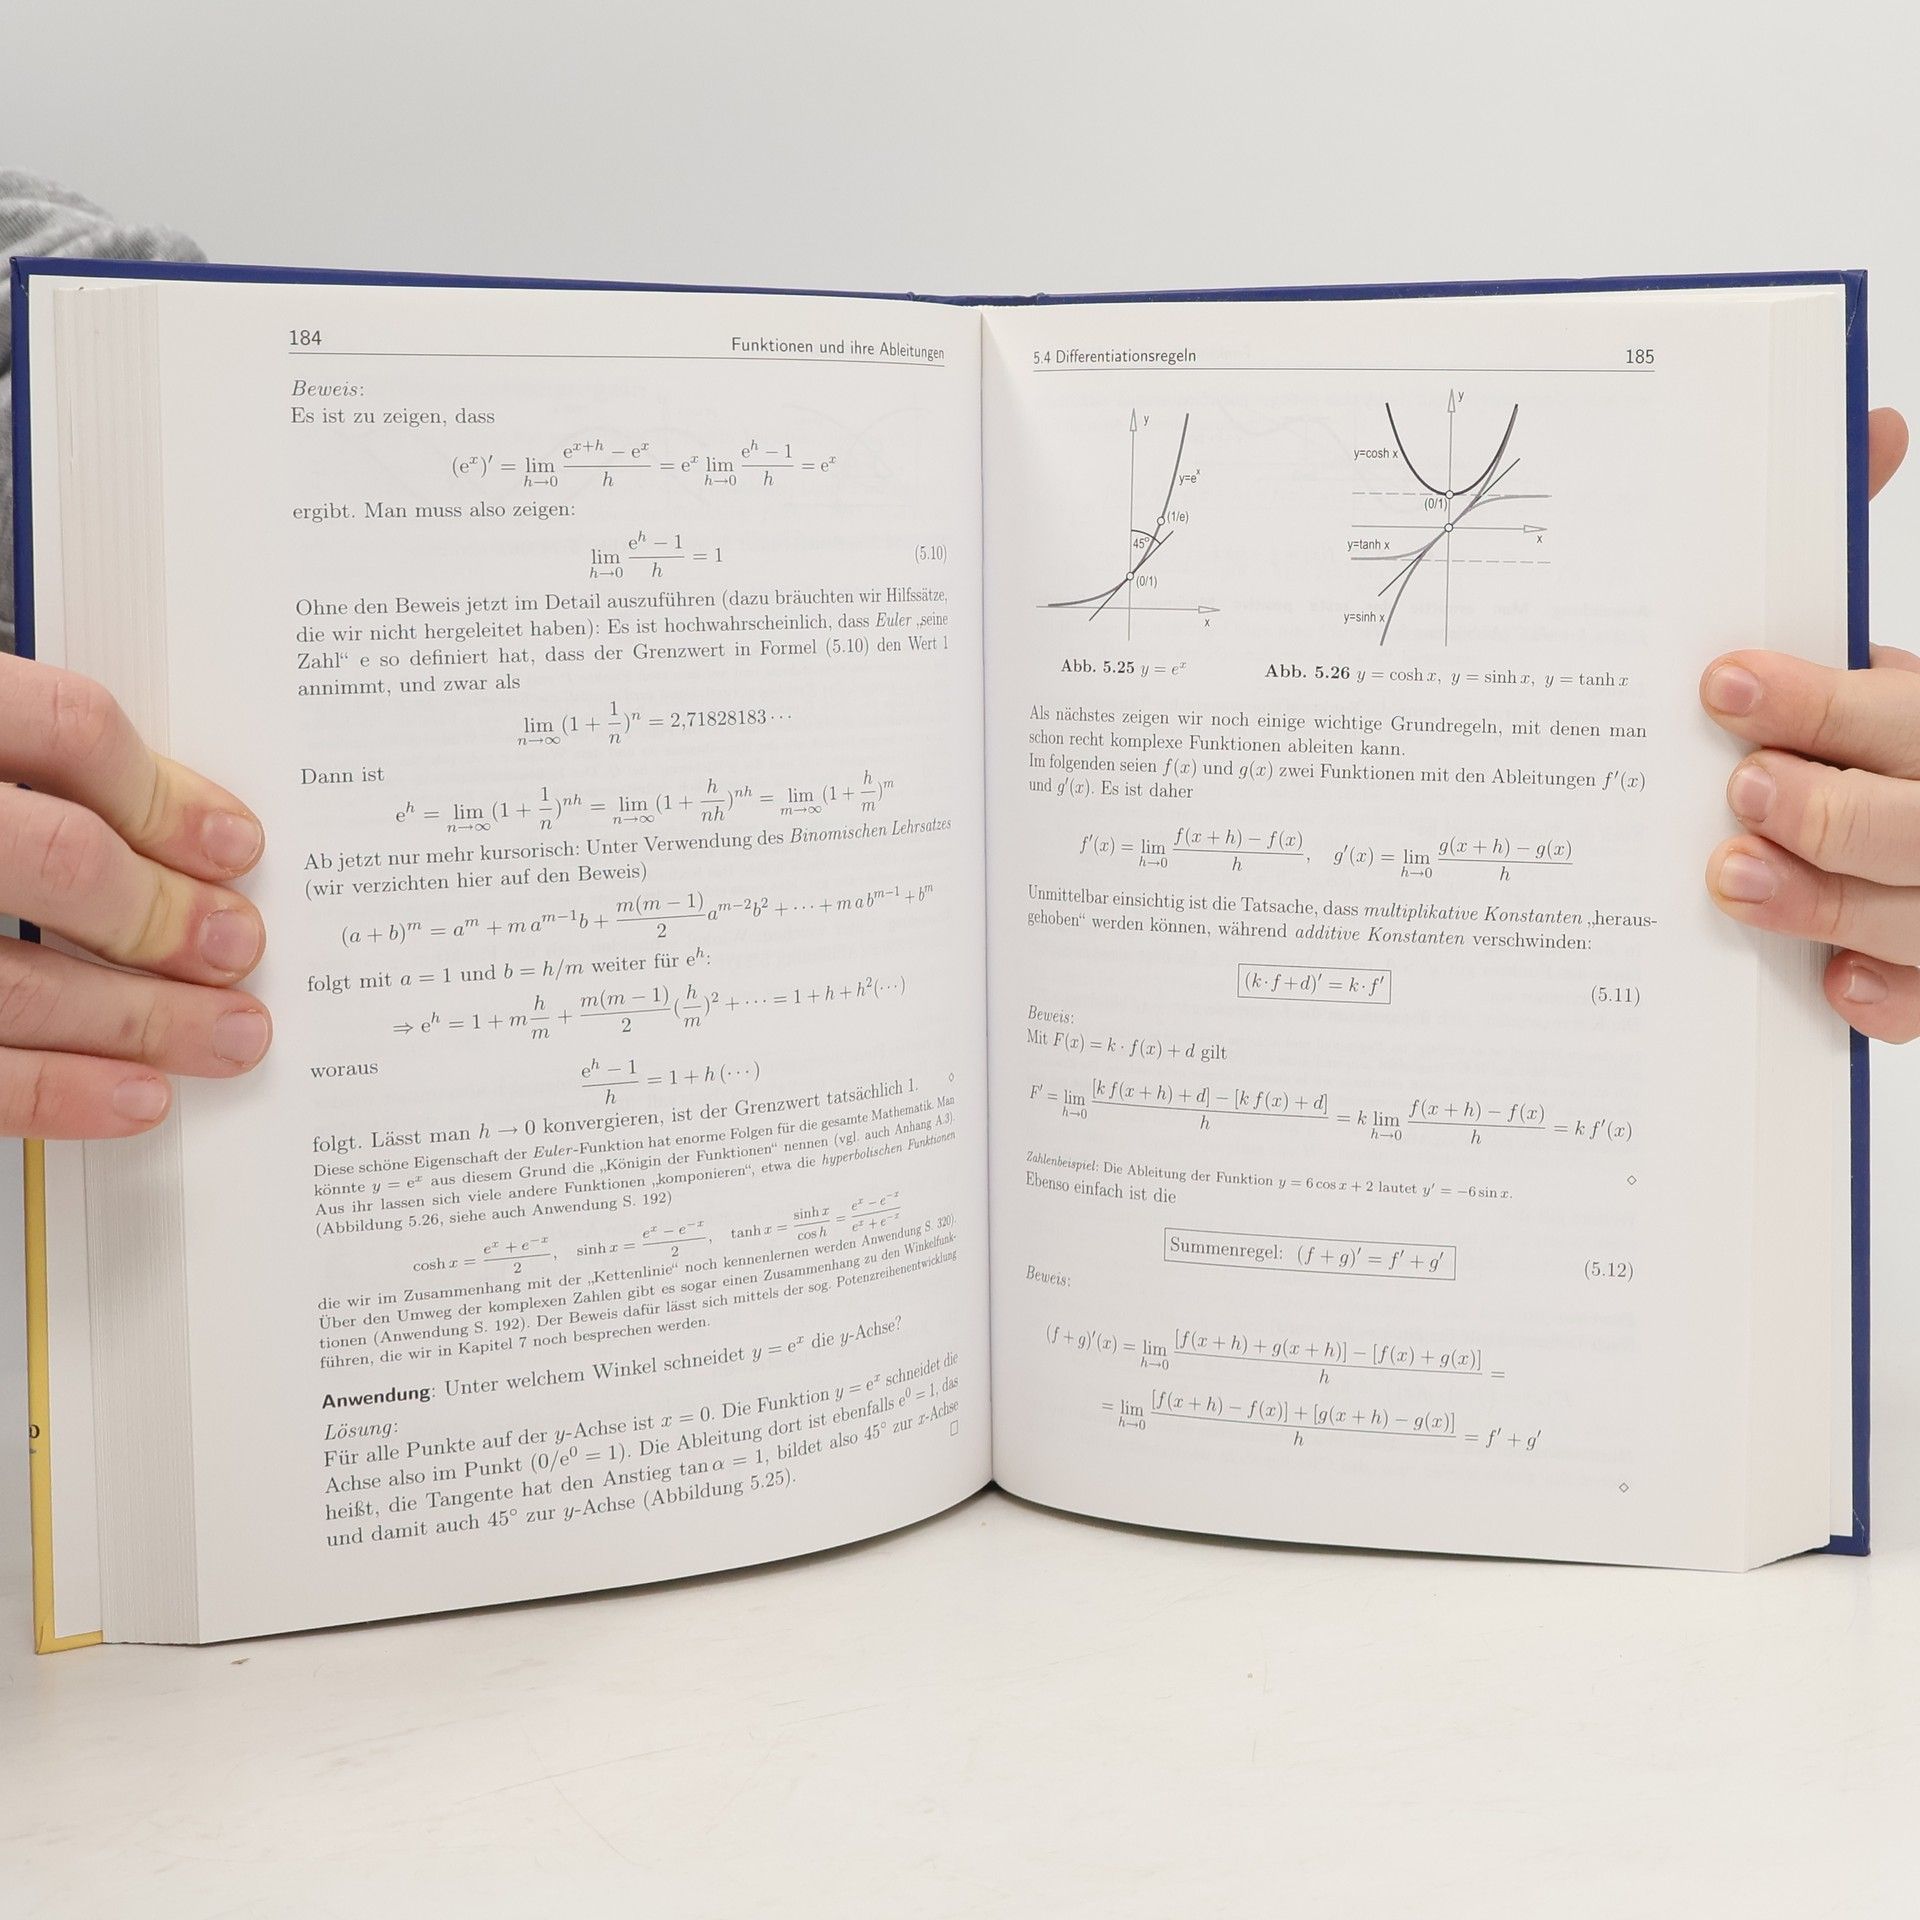 184 Funktionen und ihre Ableitungen
Beweis:
Es ist zu zeigen, dass
(eˣ)′ = lim_{h→0} (e^{x+h} − eˣ)/h = eˣ lim_{h→0} (e^h − 1)/h = eˣ
ergibt. Man muss also zeigen:
lim_{h→0} (e^h − 1)/h = 1 (5.10)
Ohne den Beweis jetzt im Detail auszuführen (dazu bräuchten wir Hilfssätze,
die wir nicht hergeleitet haben): Es ist hochwahrscheinlich, dass Euler „seine
Zahl“ e so definiert hat, dass der Grenzwert in Formel (5.10) den Wert 1
annimmt, und zwar als
lim_{n→∞} (1 + 1/n)^n = 2,71828183···
Dann ist
e^h = lim_{n→∞} (1 + 1/n)^{nh} = lim_{n→∞} (1 + h/(nh))^{nh} = lim_{m→∞} (1 + h/m)^m
Ab jetzt nur mehr kursorisch: Unter Verwendung des Binomischen Lehrsatzes
(wir verzichten hier auf den Beweis)
(a + b)^m = a^m + m a^{m−1}b + (m(m − 1)/2) a^{m−2}b² + ··· + m a b^{m−1} + b^m
folgt mit a = 1 und b = h/m weiter für e^h:
⇒ e^h = 1 + m h/m + (m(m − 1)/2)(h/m)² + ··· = 1 + h + h²(···)
woraus
(e^h − 1)/h = 1 + h (···)
folgt. Lässt man h → 0 konvergieren, ist der Grenzwert tatsächlich 1. ◇
Diese schöne Eigenschaft der Euler-Funktion hat enorme Folgen für die gesamte Mathematik. Man
könnte y = eˣ aus diesem Grund die „Königin der Funktionen“ nennen (vgl. auch Anhang A.3).
Aus ihr lassen sich viele andere Funktionen „komponieren“, etwa die hyperbolischen Funktionen
(Abbildung 5.26, siehe auch Anwendung S. 192)
cosh x = (eˣ + e^{−x})/2, sinh x = (eˣ − e^{−x})/2, tanh x = sinh x/cos h = (eˣ − e^{−x})/(eˣ + e^{−x})
die wir im Zusammenhang mit der „Kettenlinie“ noch kennenlernen werden Anwendung S. 320).
Über den Umweg der komplexen Zahlen gibt es sogar einen Zusammenhang zu den Winkelfunk-
tionen (Anwendung S. 192). Der Beweis dafür lässt sich mittels der sog. Potenzreihenentwicklung
führen, die wir in Kapitel 7 noch besprechen werden.
Anwendung: Unter welchem Winkel schneidet y = eˣ die y-Achse?
Lösung:
Für alle Punkte auf der y-Achse ist x = 0. Die Funktion y = eˣ schneidet die
Achse also im Punkt (0/e⁰ = 1). Die Ableitung dort ist ebenfalls e⁰ = 1, das
heißt, die Tangente hat den Anstieg tan α = 1, bildet also 45° zur x-Achse
und damit auch 45° zur y-Achse (Abbildung 5.25). □
5.4 Differentiationsregeln 185
y
y=eˣ
(1/e)
45°
(0/1)
x
y
y=cosh x
(0/1)
x
y=tanh x
y=sinh x
Abb. 5.25 y = eˣ
Abb. 5.26 y = cosh x, y = sinh x, y = tanh x
Als nächstes zeigen wir noch einige wichtige Grundregeln, mit denen man
schon recht komplexe Funktionen ableiten kann.
Im folgenden seien f(x) und g(x) zwei Funktionen mit den Ableitungen f′(x)
und g′(x). Es ist daher
f′(x) = lim_{h→0} (f(x + h) − f(x))/h, g′(x) = lim_{h→0} (g(x + h) − g(x))/h
Unmittelbar einsichtig ist die Tatsache, dass multiplikative Konstanten „heraus-
gehoben“ werden können, während additive Konstanten verschwinden:
(k·f+d)′ = k·f′ (5.11)
Beweis:
Mit F(x) = k · f(x) + d gilt
F′ = lim_{h→0} ([k f(x + h) + d] − [k f(x) + d])/h = k lim_{h→0} (f(x + h) − f(x))/h = k f′(x)
◇
Zahlenbeispiel: Die Ableitung der Funktion y = 6 cos x + 2 lautet y′ = −6 sin x.
Ebenso einfach ist die
Summenregel: (f + g)′ = f′ + g′ (5.12)
Beweis:
(f + g)′(x) = lim_{h→0} ([f(x + h) + g(x + h)] − [f(x) + g(x)])/h =
= lim_{h→0} ([f(x + h) − f(x)] + [g(x + h) − g(x)])/h = f′ + g′
◇